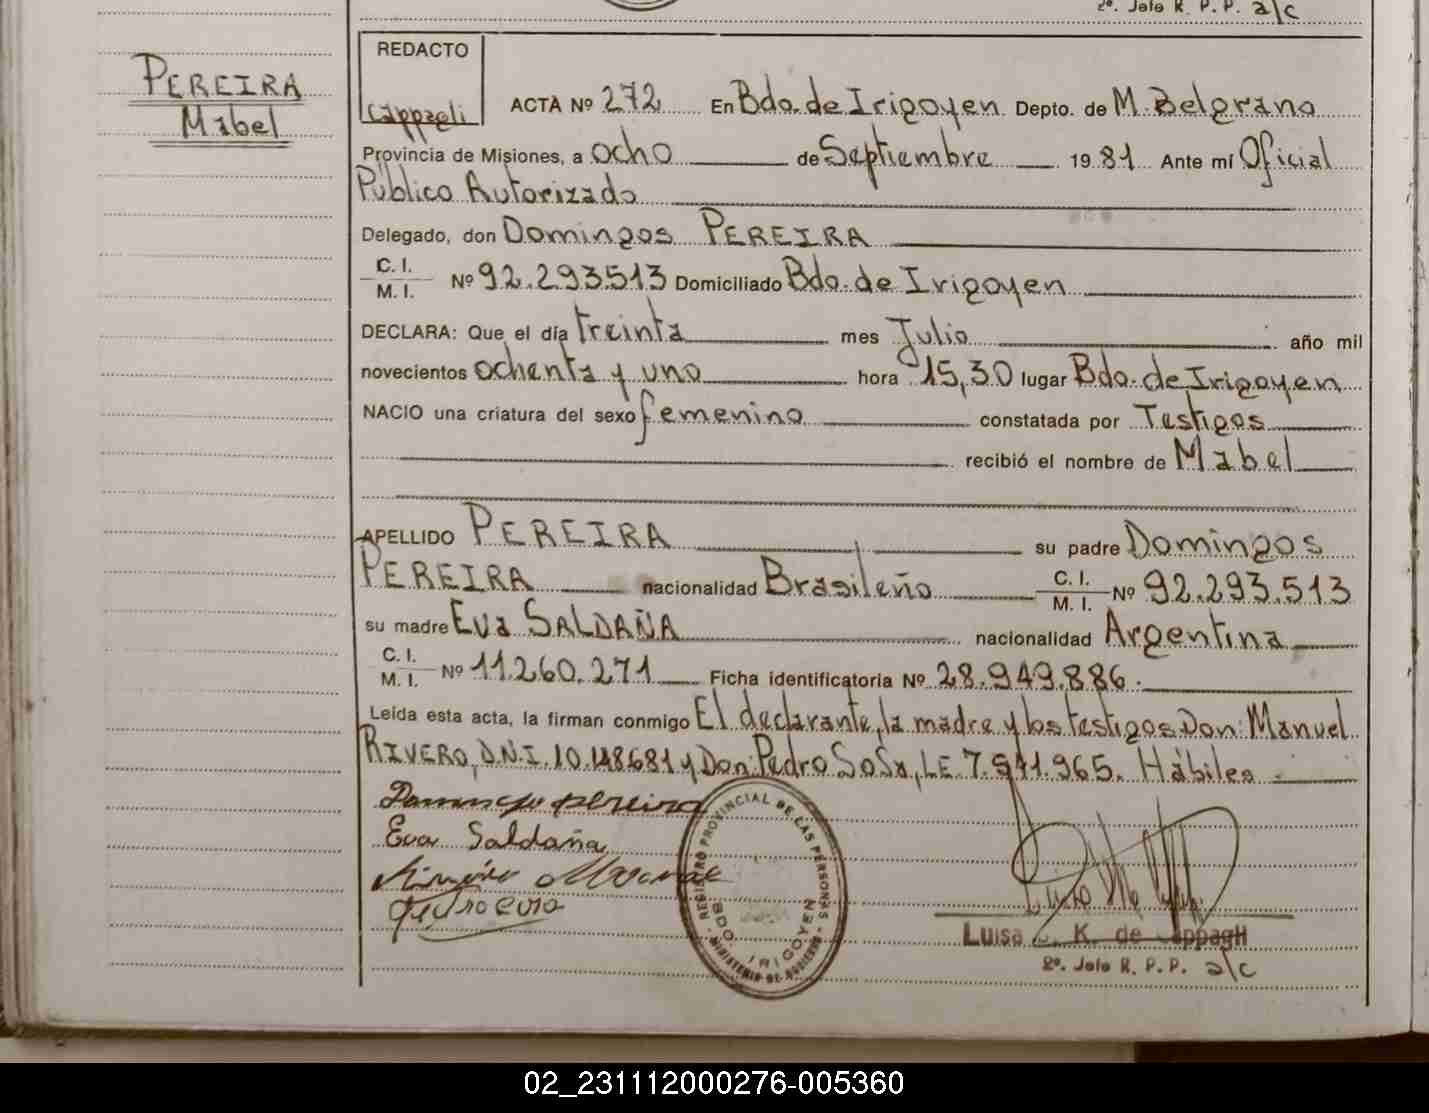 2º. Jefe R. P. P. a/c
PEREIRA
Mabel
REDACTO
Cappagli
ACTA Nº 272 En Bdo. de Irigoyen Depto. de M. Belgrano
Provincia de Misiones, a ocho de Septiembre 1981 Ante mí Oficial
Público Autorizado
Delegado, don Domingos PEREIRA
C. I.
M. I. Nº 92.293.513 Domiciliado Bdo. de Irigoyen
DECLARA: Que el día treinta mes Julio año mil
novecientos ochenta y uno hora 15,30 lugar Bdo. de Irigoyen
NACIO una criatura del sexo femenino constatada por Testigos
recibió el nombre de Mabel
APELLIDO PEREIRA su padre Domingos
PEREIRA nacionalidad Brasileño C. I. M. I. Nº 92.293.513
su madre Eva SALDAÑA nacionalidad Argentina
C. I.
M. I. Nº 11.260.271 Ficha identificatoria Nº 28.949.886.
Leída esta acta, la firman conmigo El declarante, la madre y los testigos Don: Manuel
RIVERO, D.N.I. 10.148681 y Don: Pedro SoSa, L.E. 7.541.965. Hábiles
Eva Saldaña
REGISTRO PROVINCIAL DE LAS PERSONAS
BDO. IRIGOYEN
MINISTERIO DE GOBIERNO
Luisa K. de Cappagli
2º. Jefe R. P. P. a/c
02_231112000276-005360